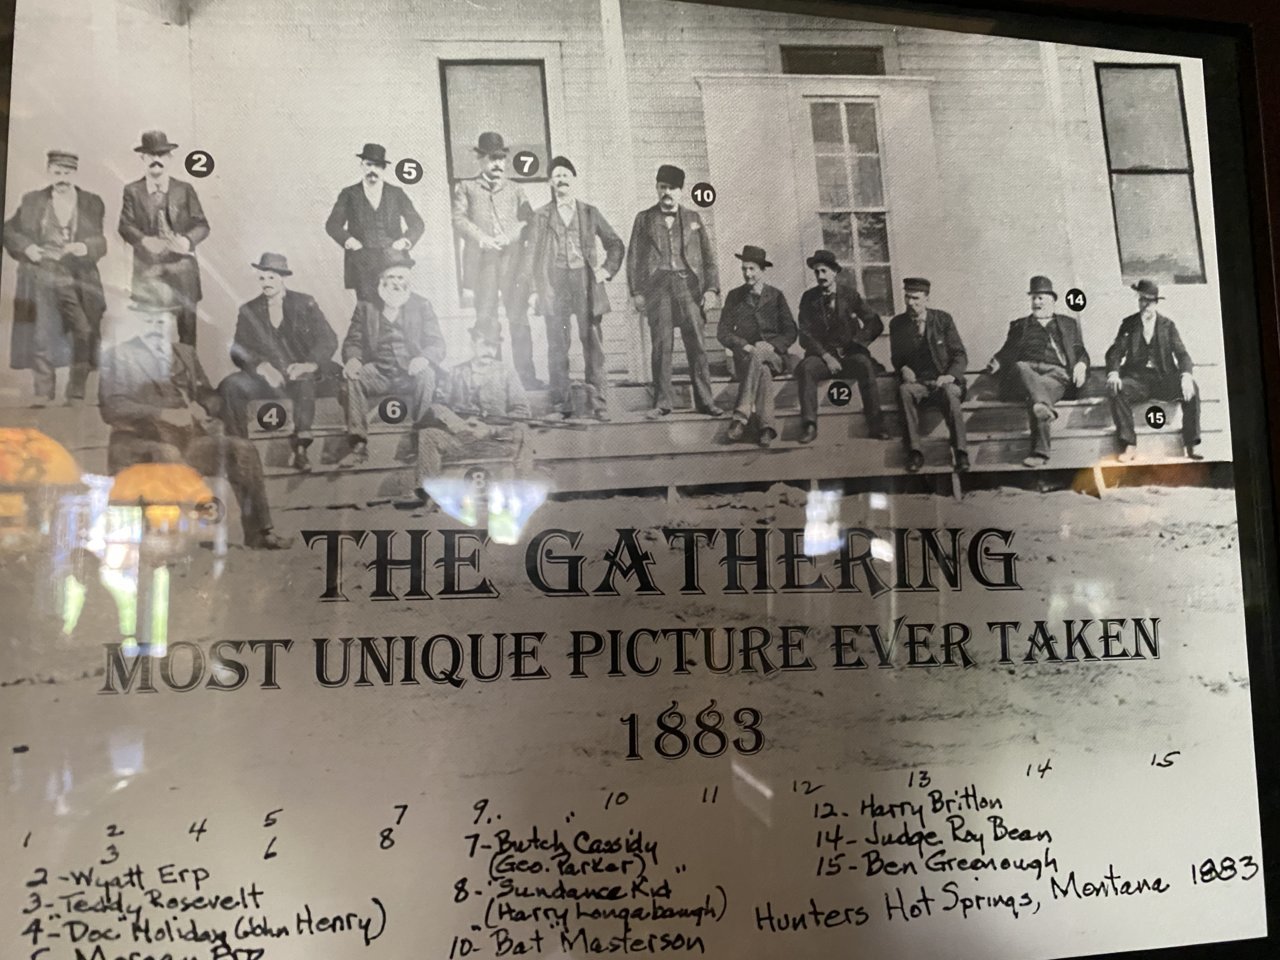 2
5
7
10
14
4
6
12
15
8
3
THE GATHERING
MOST UNIQUE PICTURE EVER TAKEN
1883
1 2 4 5 7 9.. " 10 11 12 13 14 15
3 6 8
2-Wyatt Erp
3-Teddy Rosevelt
4-"Doc" Holiday (John Henry)
5-Morgan Erp
7-Butch Cassidy
(Geo. Parker) "
8-"Sundance Kid
"(Harry Longabaugh)
10-"Bat" Masterson
12-Harry Britton
14-Judge Roy Bean
15-Ben Greenough
Hunters Hot Springs, Montana 1883